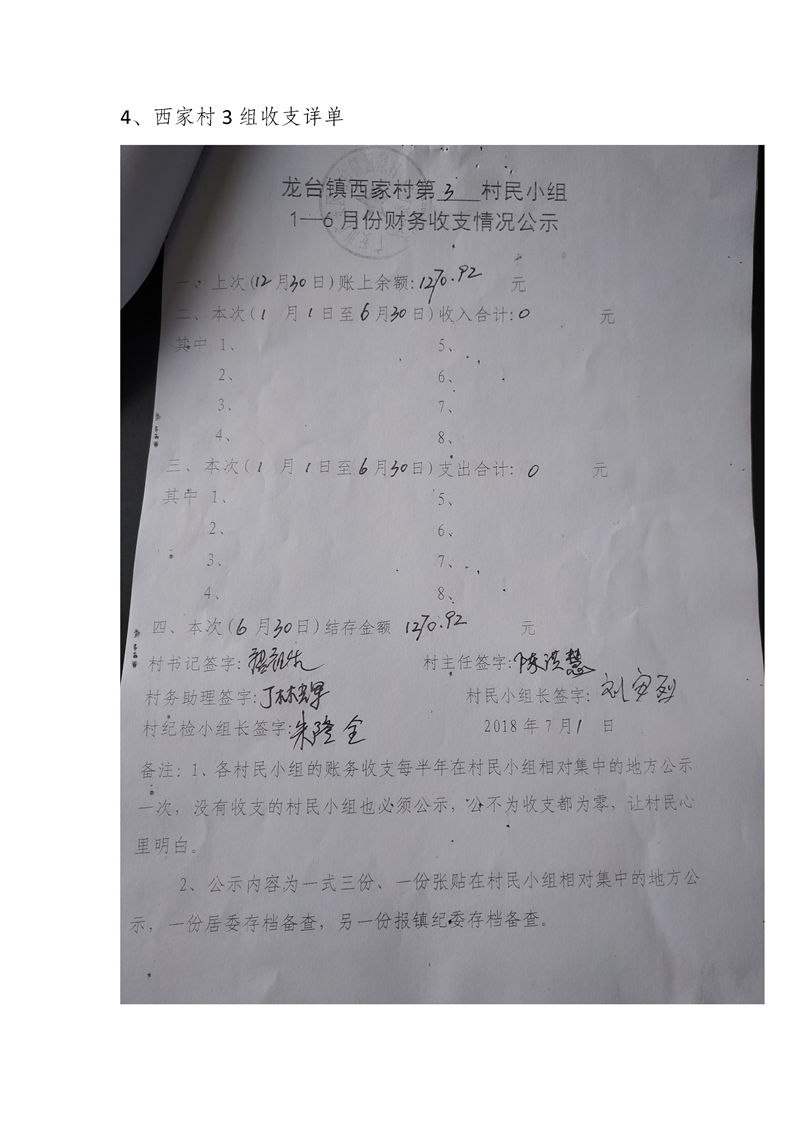 4、西家村 3 组收支详单
龙台镇西家村第 3 村民小组
1—6 月份财务收支情况公示
一、上次(12月30日)账上余额:1270.92 元
二、本次(1 月1日至6月30日)收入合计:0 元
其中 1、 5、
2、 6、
3、 7、
4、 8、
三、本次(1 月1日至6月30日)支出合计: 0 元
其中 1、 5、
2、 6、
3、 7、
4、 8、
四、本次(6月30日)结存金额 1270.92 元
村书记签字: 村主任签字:陈洪慧
村务助理签字:丁林辉 村民小组长签字:
村纪检小组长签字:朱隆全 2018 年 7 月 1 日
备注: 1、各村民小组的账务收支每半年在村民小组相对集中的地方公示
一次，没有收支的村民小组也必须公示，公不为收支都为零，让村民心
里明白。
2、公示内容为一式三份、一份张贴在村民小组相对集中的地方公
示，一份居委存档备查，另一份报镇纪委存档备查。